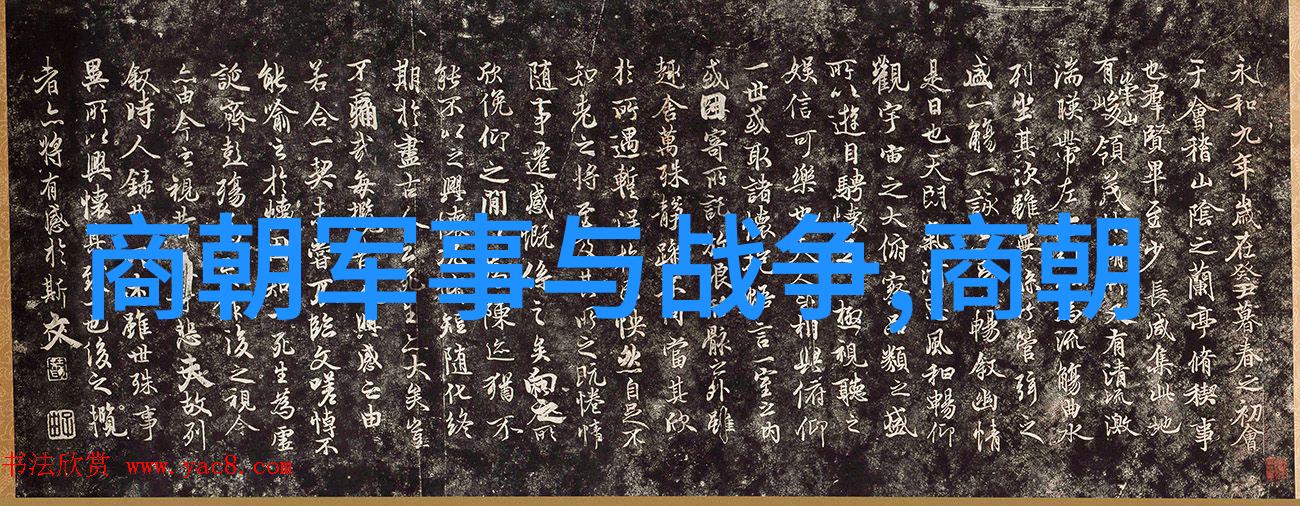 商朝军事与战争,商朝
永和九年歲在癸丑暮春之初會
于會稽山陰之蘭亭脩稧事
也羣賢畢至少長咸集此地
有崇山峻領茂又有清流激
湍暎帶左流觴曲水
列坐其次雖無管弦之
盛一觴一詠暢敘幽情
是日也天朗氣清風和暢仰
觀宇宙之大俯察類之盛
所以遊目騁懷極視聽之
娛信可樂也夫人相與俯仰
一世或取諸懷抱悟言一室之內
或因寄所託放浪骸之外雖
趣舍萬殊靜躁當其欣
於所遇蹔得快然自足不
知老之將至及其所之既惓情
隨事遷感慨係之矣向之所
欣俛仰之間陳迹猶不
能不以之興懷短隨化終
期於盡古人死生亦大矣豈
不痛哉每攬興感之由
若合一契未嘗不臨文嗟悼不
能喻之於懷固知死生為虛
誕齊彭殤後之視今
亦由今之視悲夫故列
敘時人錄雖世殊事
異所以興懷其致一也後之攬
者亦將有感於斯文
书法欣赏 www.yac8.com